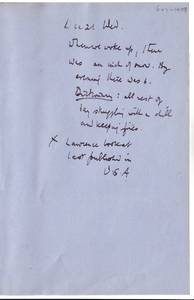 Wed.
When we woke up, there
was an inch of snow. By
evening there was 6.
: all rest of
day struggling with a chill
and keeping fires.
x Lawrence book at
last published in
USA